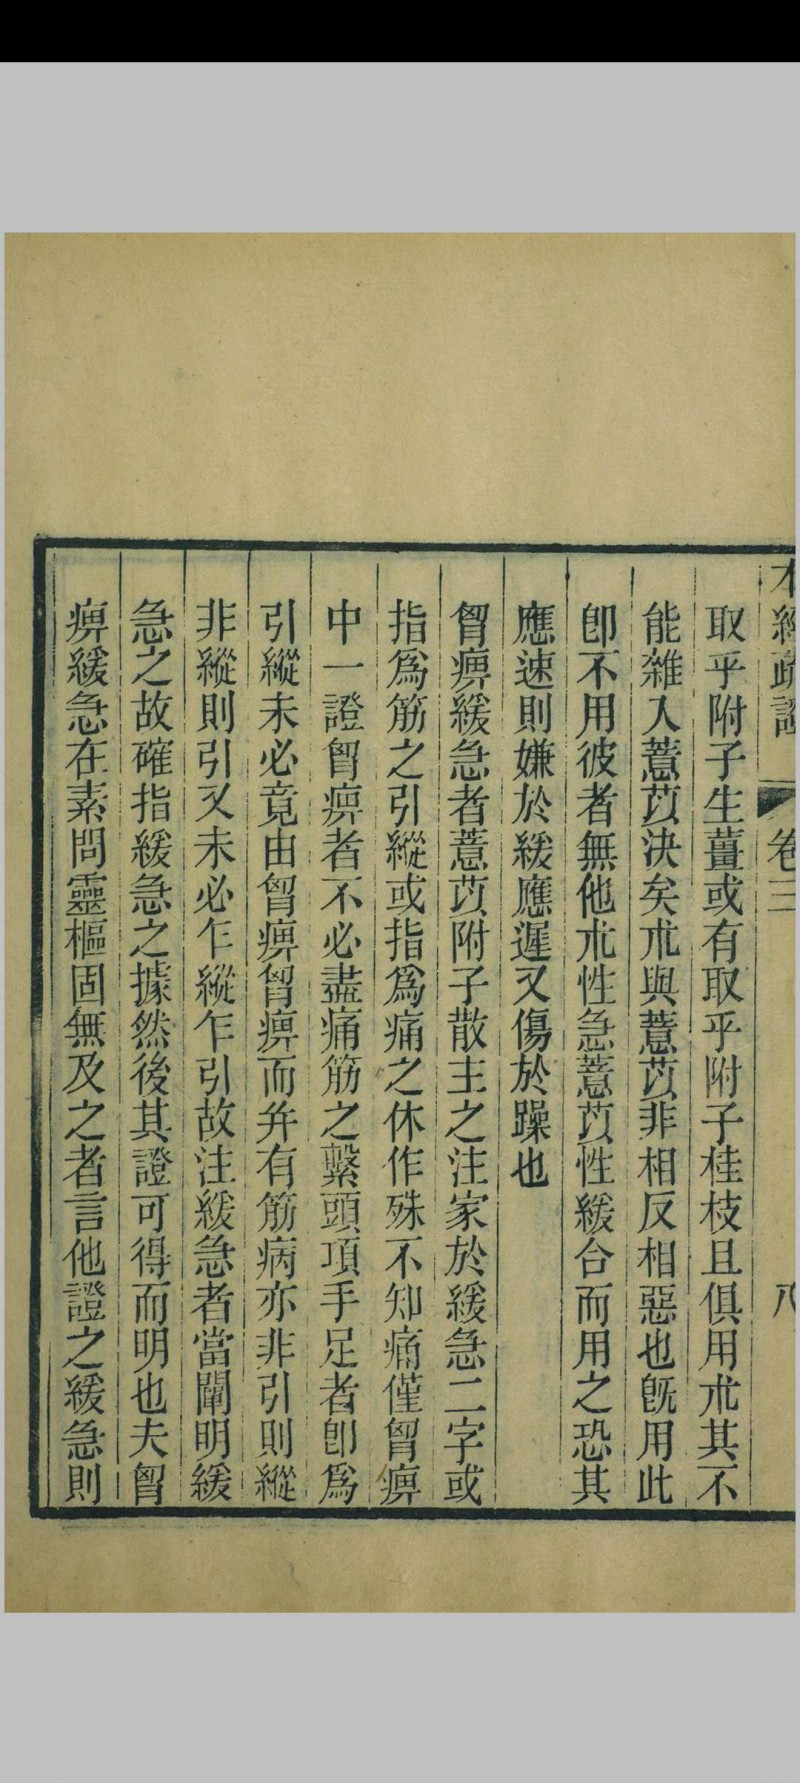 本經疏證 卷三 八
取乎附子生薑或有取乎附子桂枝且俱用朮其不
能雜入薏苡決矣朮與薏苡非相反相惡也旣用此
卽不用彼者無他朮性急薏苡性緩合而用之恐其
應速則嫌於緩應遲又傷於躁也
胷痹緩急者薏苡附子散主之注家於緩急二字或
指爲筋之引縱或指爲痛之休作殊不知痛僅胷痹
中一證胷痹者不必盡痛筋之繫頭項手足者卽爲
引縱未必竟由胷痹胷痹而幷有筋病亦非引則縱
非縱則引又未必乍縱乍引故注緩急者當闡明緩
急之故確指緩急之據然後其證可得而明也夫胷
痹緩急在素問靈樞固無及之者言他證之緩急則